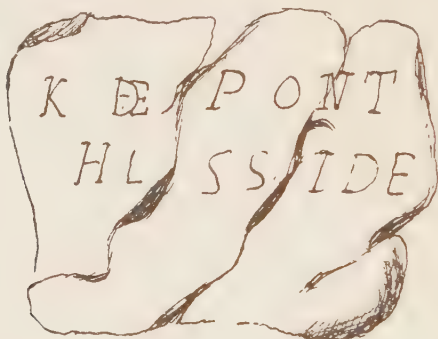 K DE PONT
HL SS. IDE